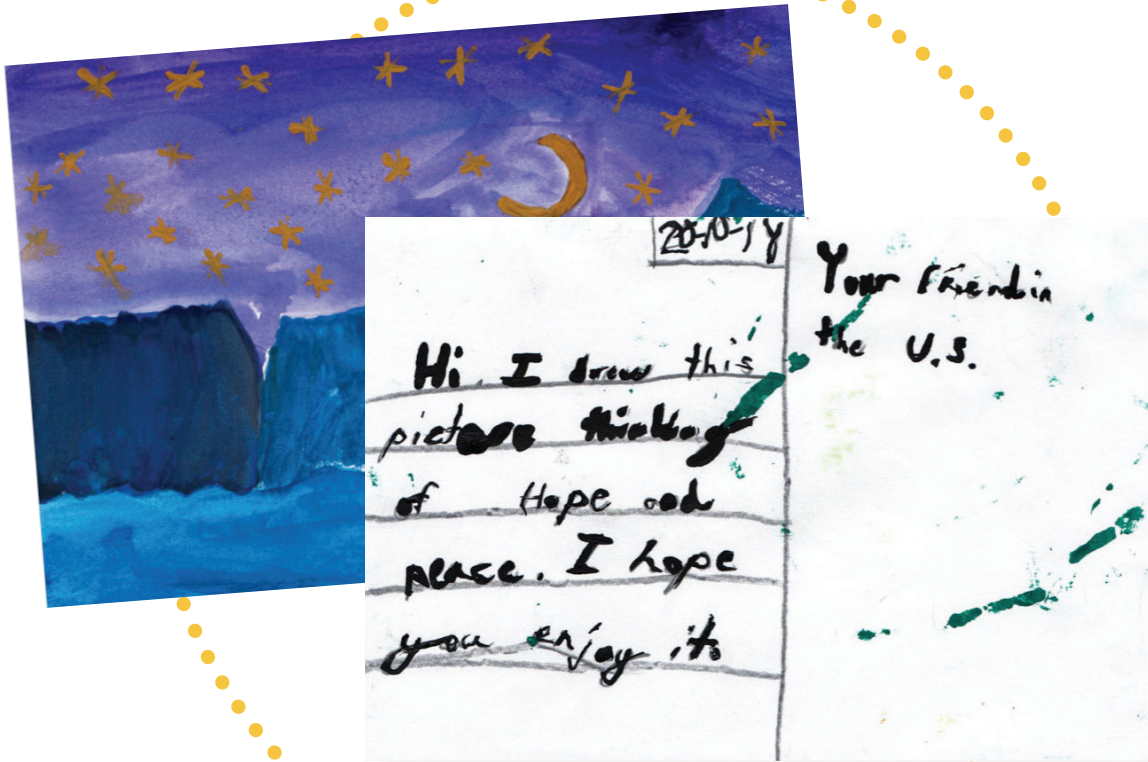 20-10-14
Hi. I drew this
picture thinking
of Hope and
peace. I hope
you enjoy it.
Your Friend in
the U.S.